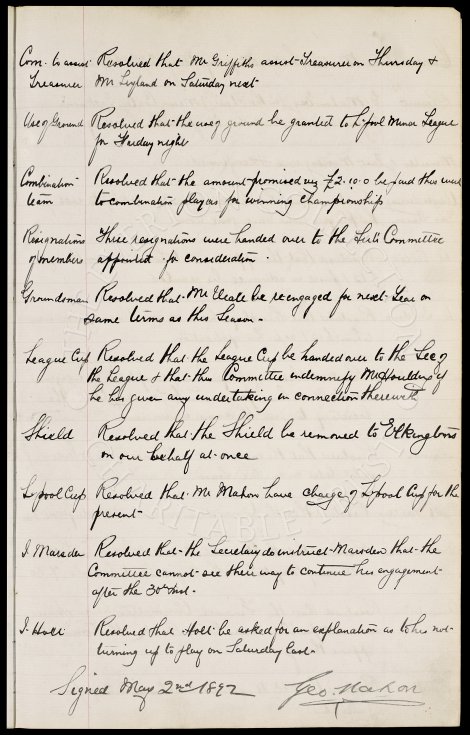 Com. to assist Resolved that Mr Griffiths assist Treasurer on Thursday &
Treasurer Mr Leyland on Saturday next
Use of Ground Resolved that the use of ground be granted to L'pool Minor League
for night
Combination Resolved that the amount promised viz £2.10.0 be paid this week
team to combination players for winning championship
Resignations Three resignations were handed over to the Sub Committee
of members appointed for consideration.
Groundsman Resolved that Mr be re engaged for next Year on
same terms as this Season.
League Cup Resolved that the League Cup be handed over to the Sec of
the League & that this Committee indemnify Mr Houlding if
he has given any undertaking in connection therewith
Shield Resolved that the Shield be removed to Elkingtons
on our behalf at once
L'pool Cup Resolved that Mr Mahon have charge of L'pool Cup for the
present
J. Marsden Resolved that the Secretary do instruct Marsden that the
Committee cannot see their way to continue his engagement
after the 30th Inst.
J. Holt Resolved that Holt be asked for an explanation as to his not
turning up to play on Saturday last.
Signed May 2nd 1892 Geo. Mahon